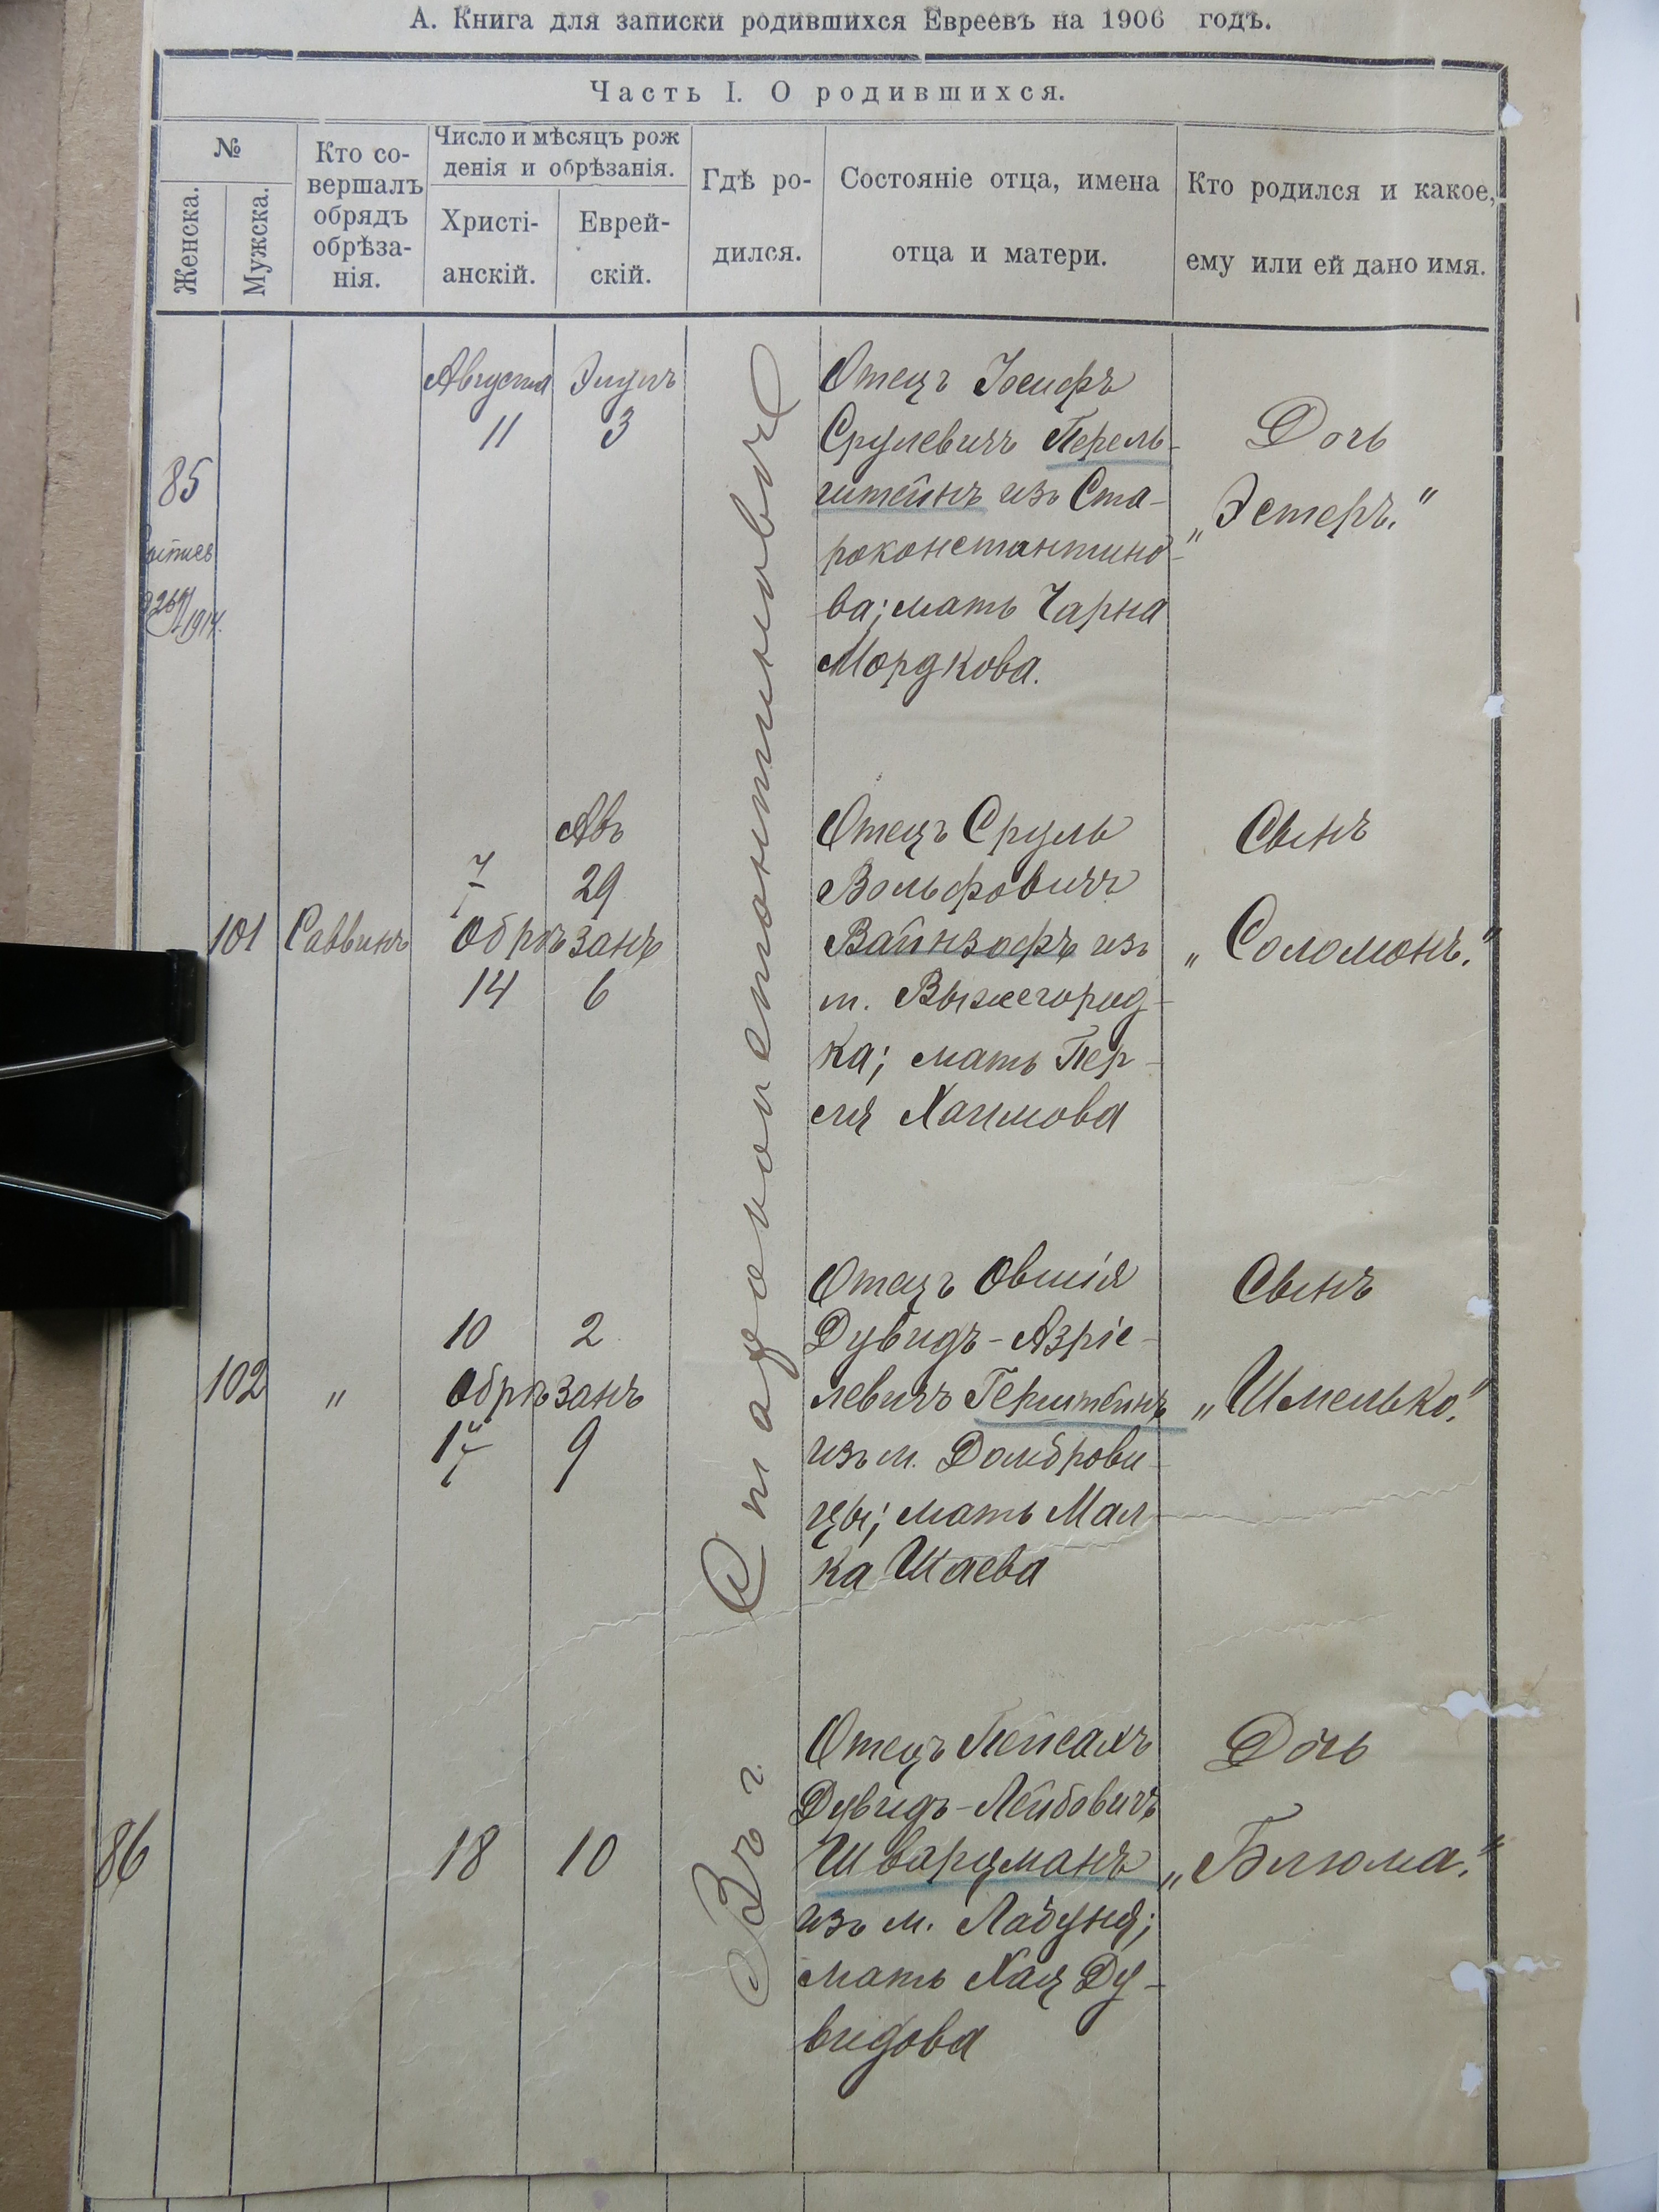 А. Книга для записки родившихся Евреевъ на 1906 годъ.
Часть I. О родившихся.
№
Женска.
Мужска.
Кто со-
вершалъ
обрядъ
обрѣза-
нія.
Число и мѣсяцъ рож
денія и обрѣзанія.
Христі-
анскій.
Еврей-
скій.
Гдѣ ро-
дился.
Состояніе отца, имена
отца и матери.
Кто родился и какое,
ему или ей дано имя.
Въ г. Староконстантиновѣ
85
1914
Августа
11
Элулъ
3
Отецъ Іосифъ
Срулевичъ Перель-
штейнъ изъ Ста-
роконстантино-
ва; мать Чарна
Мордкова.
Дочь
„Эстеръ."
101
Саввинъ
7
Авъ
29
Обрѣзанъ
14 6
Отецъ Сруль
Вольфовичъ
Вайнзофъ изъ
м. Выжегород-
ка; мать Пер-
ля Хаимова
Сынъ
„Соломонъ."
102
„
10 2
Обрѣзанъ
17 9
Отецъ Овшія
Дувидъ-Азріе-
левичъ Герштейнъ
изъ м. Домброви-
цы; мать Мал-
ка Шаева
Сынъ
„Шмелько."
86
18 10
Отецъ Пейсахъ
Дувидъ-Лейбовичъ
Шварцманъ
изъ м. Лабуня;
мать Хая Ду-
видова
Дочь
„Блюма."